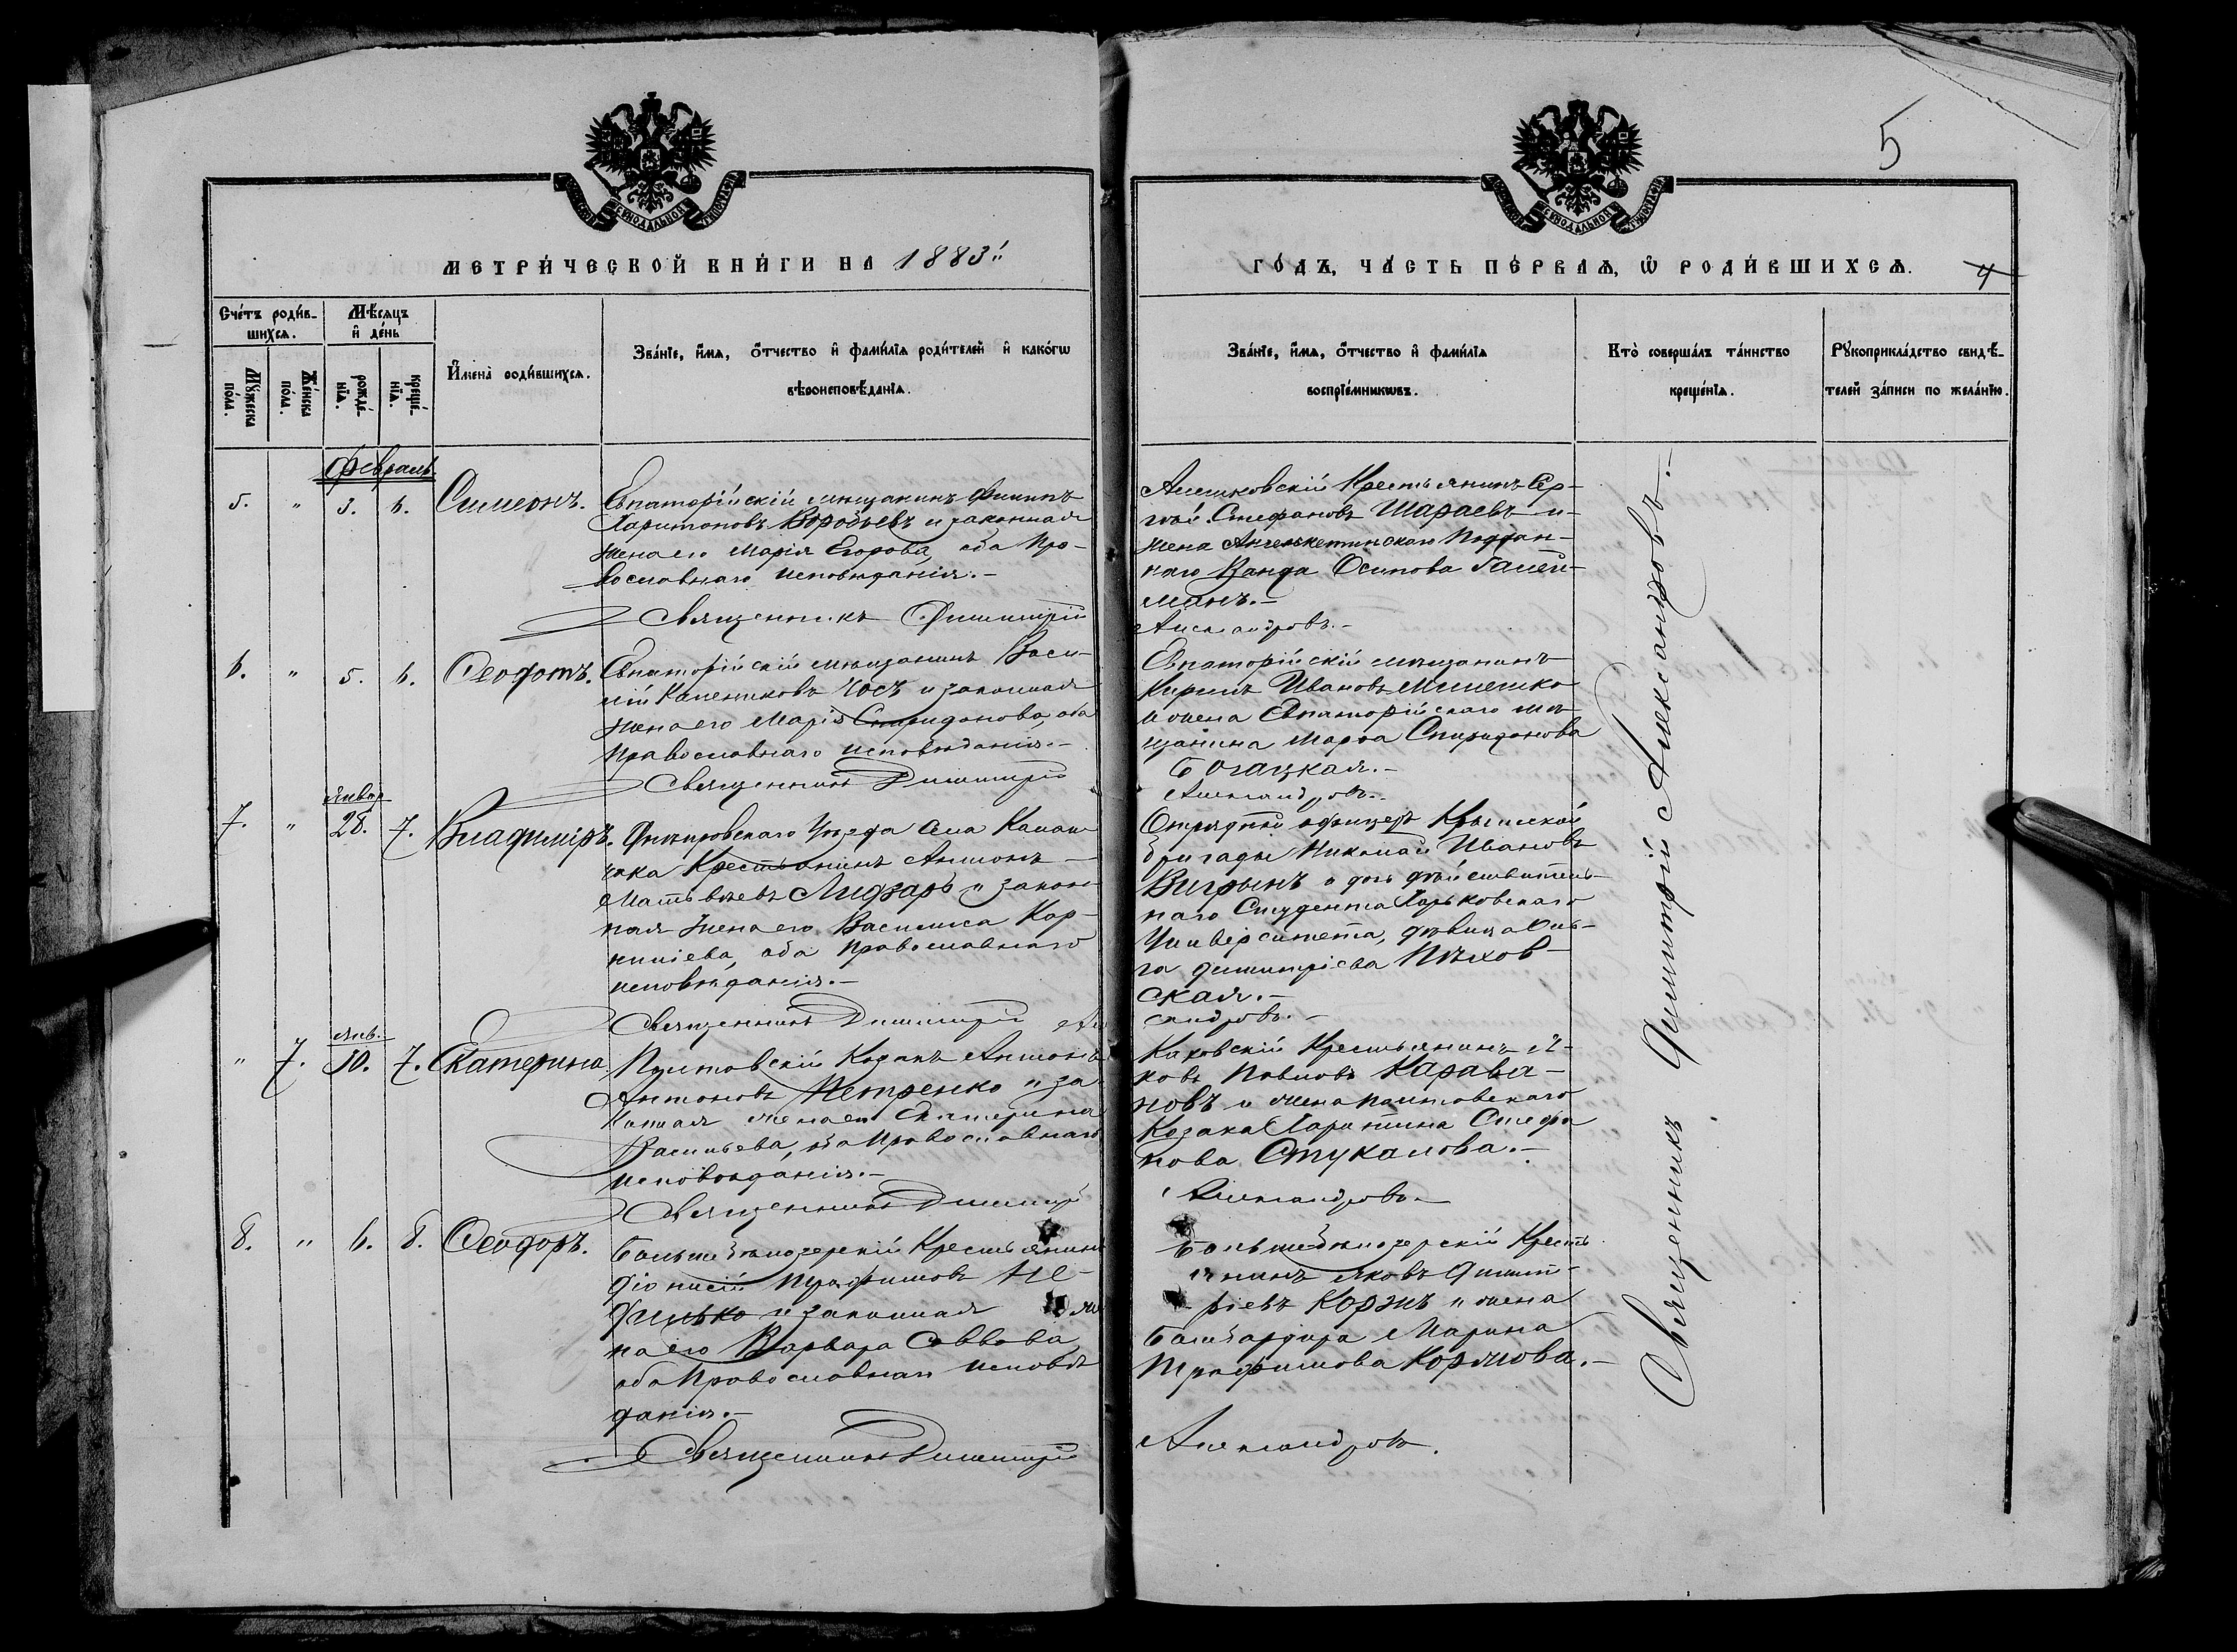 5
МЕТРИЧЕСКОЙ КНИГИ НА 1883
ГОДЪ, ЧАСТЬ ПЕРВАЯ, Ѡ РОДИВШИХСЯ.
4
Счетъ родив-
шихся.
Мѣсяцъ
и день
Мужеска
пола.
Женска
пола.
рожде-
нїя.
креще-
нїя.
Имена родившихся.
Званїе, имя, отчество и фамилїя родителей и какогѡ
вѣроисповѣданїя.
Званїе, имя, отчество и фамилїя
воспрїемникѡвъ.
Кто совершалъ таинство
крещенїя.
Рукоприкладство свидѣ-
телей записи по желанїю.
Февраль
5. " 3. 6. Симеонъ.
Евпаторійскій мѣщанинъ Филипъ
Харитоновъ Воробьевъ и законная
жена его Марія Егорова, оба Пра-
вославнаго исповѣданія.-
Священникъ Димитрій
Алешковскій Крестьянинъ Сер-
гѣй Стефановъ Шараевъ и
жена Поддан-
наго Ванда Осипова Гаисн-
манъ.-
Александровъ.-
6. " 5. 6. Ѳеодотъ.
Евпаторійскій мѣщанинъ Васи-
лій Калениковъ Чосъ и законная
жена его Марія Спиридонова, оба
Православнаго исповѣданія.-
Священникъ Димитрій
Евпаторійскій мѣщанинъ
Кирилъ Ивановъ Милешко
и жена Евпаторійскаго мѣ-
щанина Марѳа Спиридонова
Богацкая.-
Александровъ.-
Январ
7. " 28. 7. Владиміръ.
Днѣпровскаго Уѣзда села Калан-
чака Крестьянинъ Антонъ
Матвѣевъ Лидзарь и закон-
ная жена его Василиса Кор-
ниліева, оба Православнаго
исповѣданія.-
Священникъ Димитрій Але
Отрядный офицеръ Крымской
бригады Николай Ивановъ
Вигрынъ и дочь дѣйствитель-
наго Студента Харьковскаго
Университета, дѣвица Оль-
га Димитріева Пѣхов-
ская.-
сандровъ.-
Янв.
" 7. 30. 7. Екатерина.
Полтавскій Козакъ Антонъ
Антоновъ Петренко и за
конная жена его Екатерина
Васильева, оба Православнаго
исповѣданія.-
Священникъ Димитрій
Каховскій Крестьянинъ Я-
ковъ Павловъ Карава-
новъ и жена Полтавскаго
Козака Харитина Стефа
нова Стукалова.-
Александровъ.-
8. " 6. 8. Ѳеодоръ.
Большебѣлозерскій Крестьянинъ
Діонисій Трофимовъ Не-
дилько и законная же
на его Варвара Саввова
оба Православнаго исповѣ
данія.-
Священникъ Димитрій
Большебѣлозерскій Кресть
янинъ Яковъ Димит-
ріевъ Коржъ и жена
Бамбардира Марина
Трофимова Коржова.-
Александровъ.
Священникъ Димитрій Александровъ.-